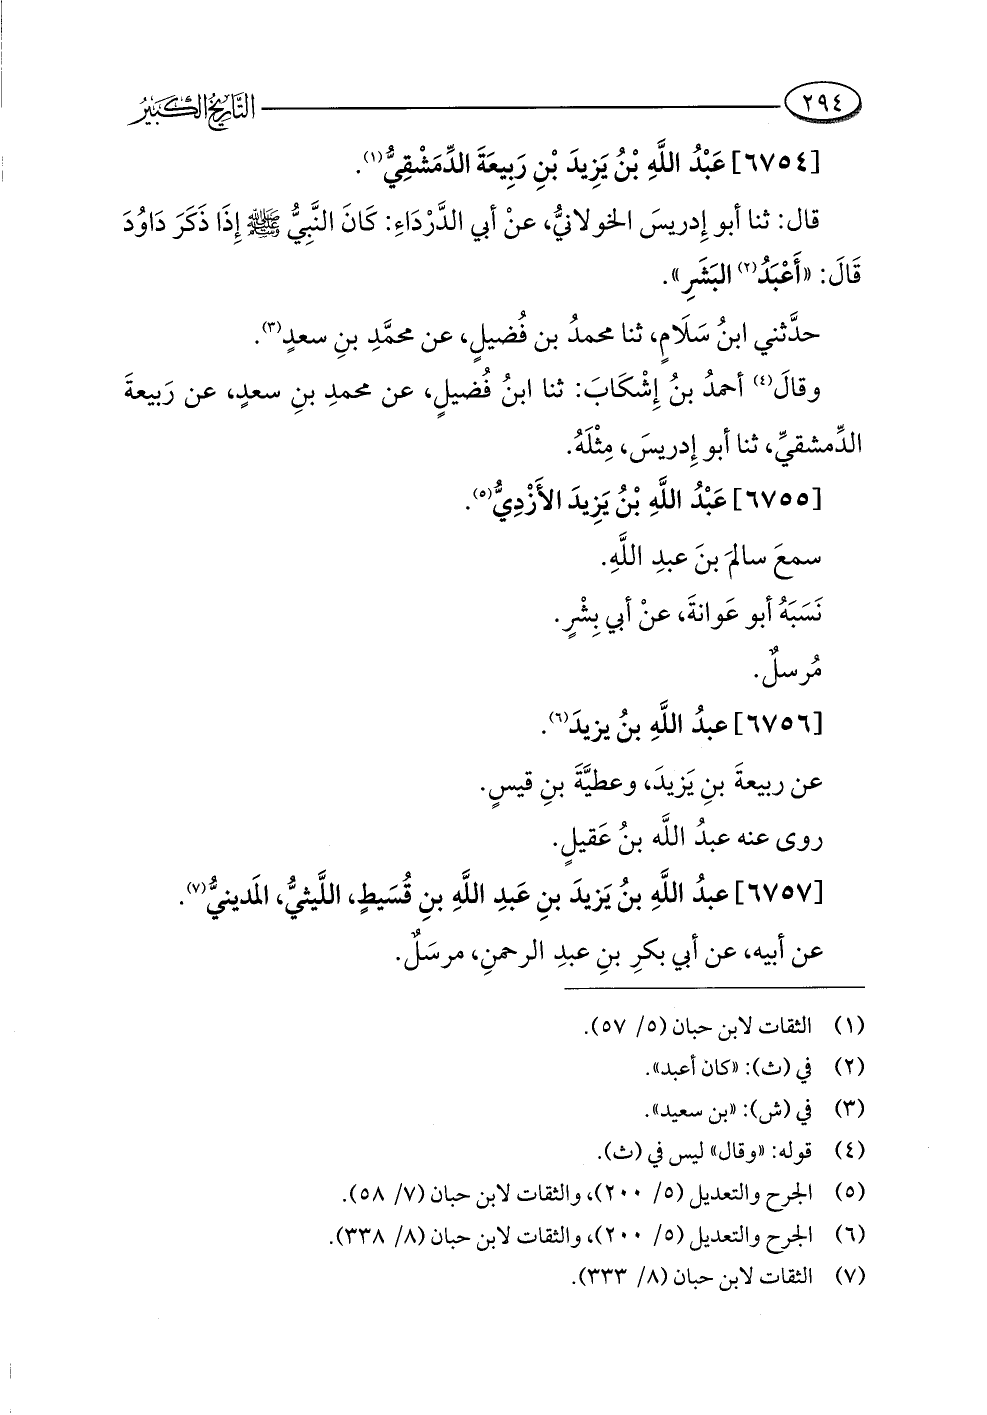 ٢٩٤ التَّارِيخُ الكَبِيرُ
[٦٧٥٤] عَبْدُ اللَّهِ بْنُ يَزِيدَ بْنِ رَبِيعَةَ الدِّمَشْقِيُّ(١).
قال: ثنا أبو إدريسَ الخولانيُّ، عنْ أبي الدَّرْدَاءِ: كَانَ النَّبِيُّ ﷺ إِذَا ذَكَرَ دَاوُدَ
قَالَ: «أَعْبَدُ(٢) البَشَرِ».
حدَّثني ابنُ سَلَامٍ، ثنا محمدُ بن فُضيلٍ، عن محمَّدِ بنِ سعدٍ(٣).
وقالَ(٤) أحمدُ بنُ إِشْكَابَ: ثنا ابنُ فُضيلٍ، عن محمدِ بنِ سعدٍ، عن رَبيعةَ
الدِّمشقيِّ، ثنا أبو إدريسَ، مِثْلَهُ.
[٦٧٥٥] عَبْدُ اللَّهِ بْنُ يَزِيدَ الأَزْدِيُّ(٥).
سمعَ سالمَ بنَ عبدِ اللَّهِ.
نَسَبَهُ أبو عَوانةَ، عنْ أبي بِشْرٍ.
مُرسلٌ.
[٦٧٥٦] عبدُ اللَّهِ بنُ يزيدَ(٦).
عن ربيعةَ بنِ يَزيدَ، وعطيَّةَ بنِ قيسٍ.
روى عنه عبدُ اللَّه بنُ عَقيلٍ.
[٦٧٥٧] عبدُ اللَّهِ بنُ يَزيدَ بنِ عَبدِ اللَّهِ بنِ قُسَيطٍ، اللَّيثيُّ، المَدينيُّ(٧).
عن أبيه، عن أبي بكرِ بنِ عبدِ الرحمنِ، مرسَلٌ.
(١) الثقات لابن حبان (٥/ ٥٧).
(٢) في (ث): «كان أعبد».
(٣) في (ش): «بن سعيد».
(٤) قوله: «وقال» ليس في (ث).
(٥) الجرح والتعديل (٥/ ٢٠٠)، والثقات لابن حبان (٧/ ٥٨).
(٦) الجرح والتعديل (٥/ ٢٠٠)، والثقات لابن حبان (٨/ ٣٣٨).
(٧) الثقات لابن حبان (٨/ ٣٣٣).